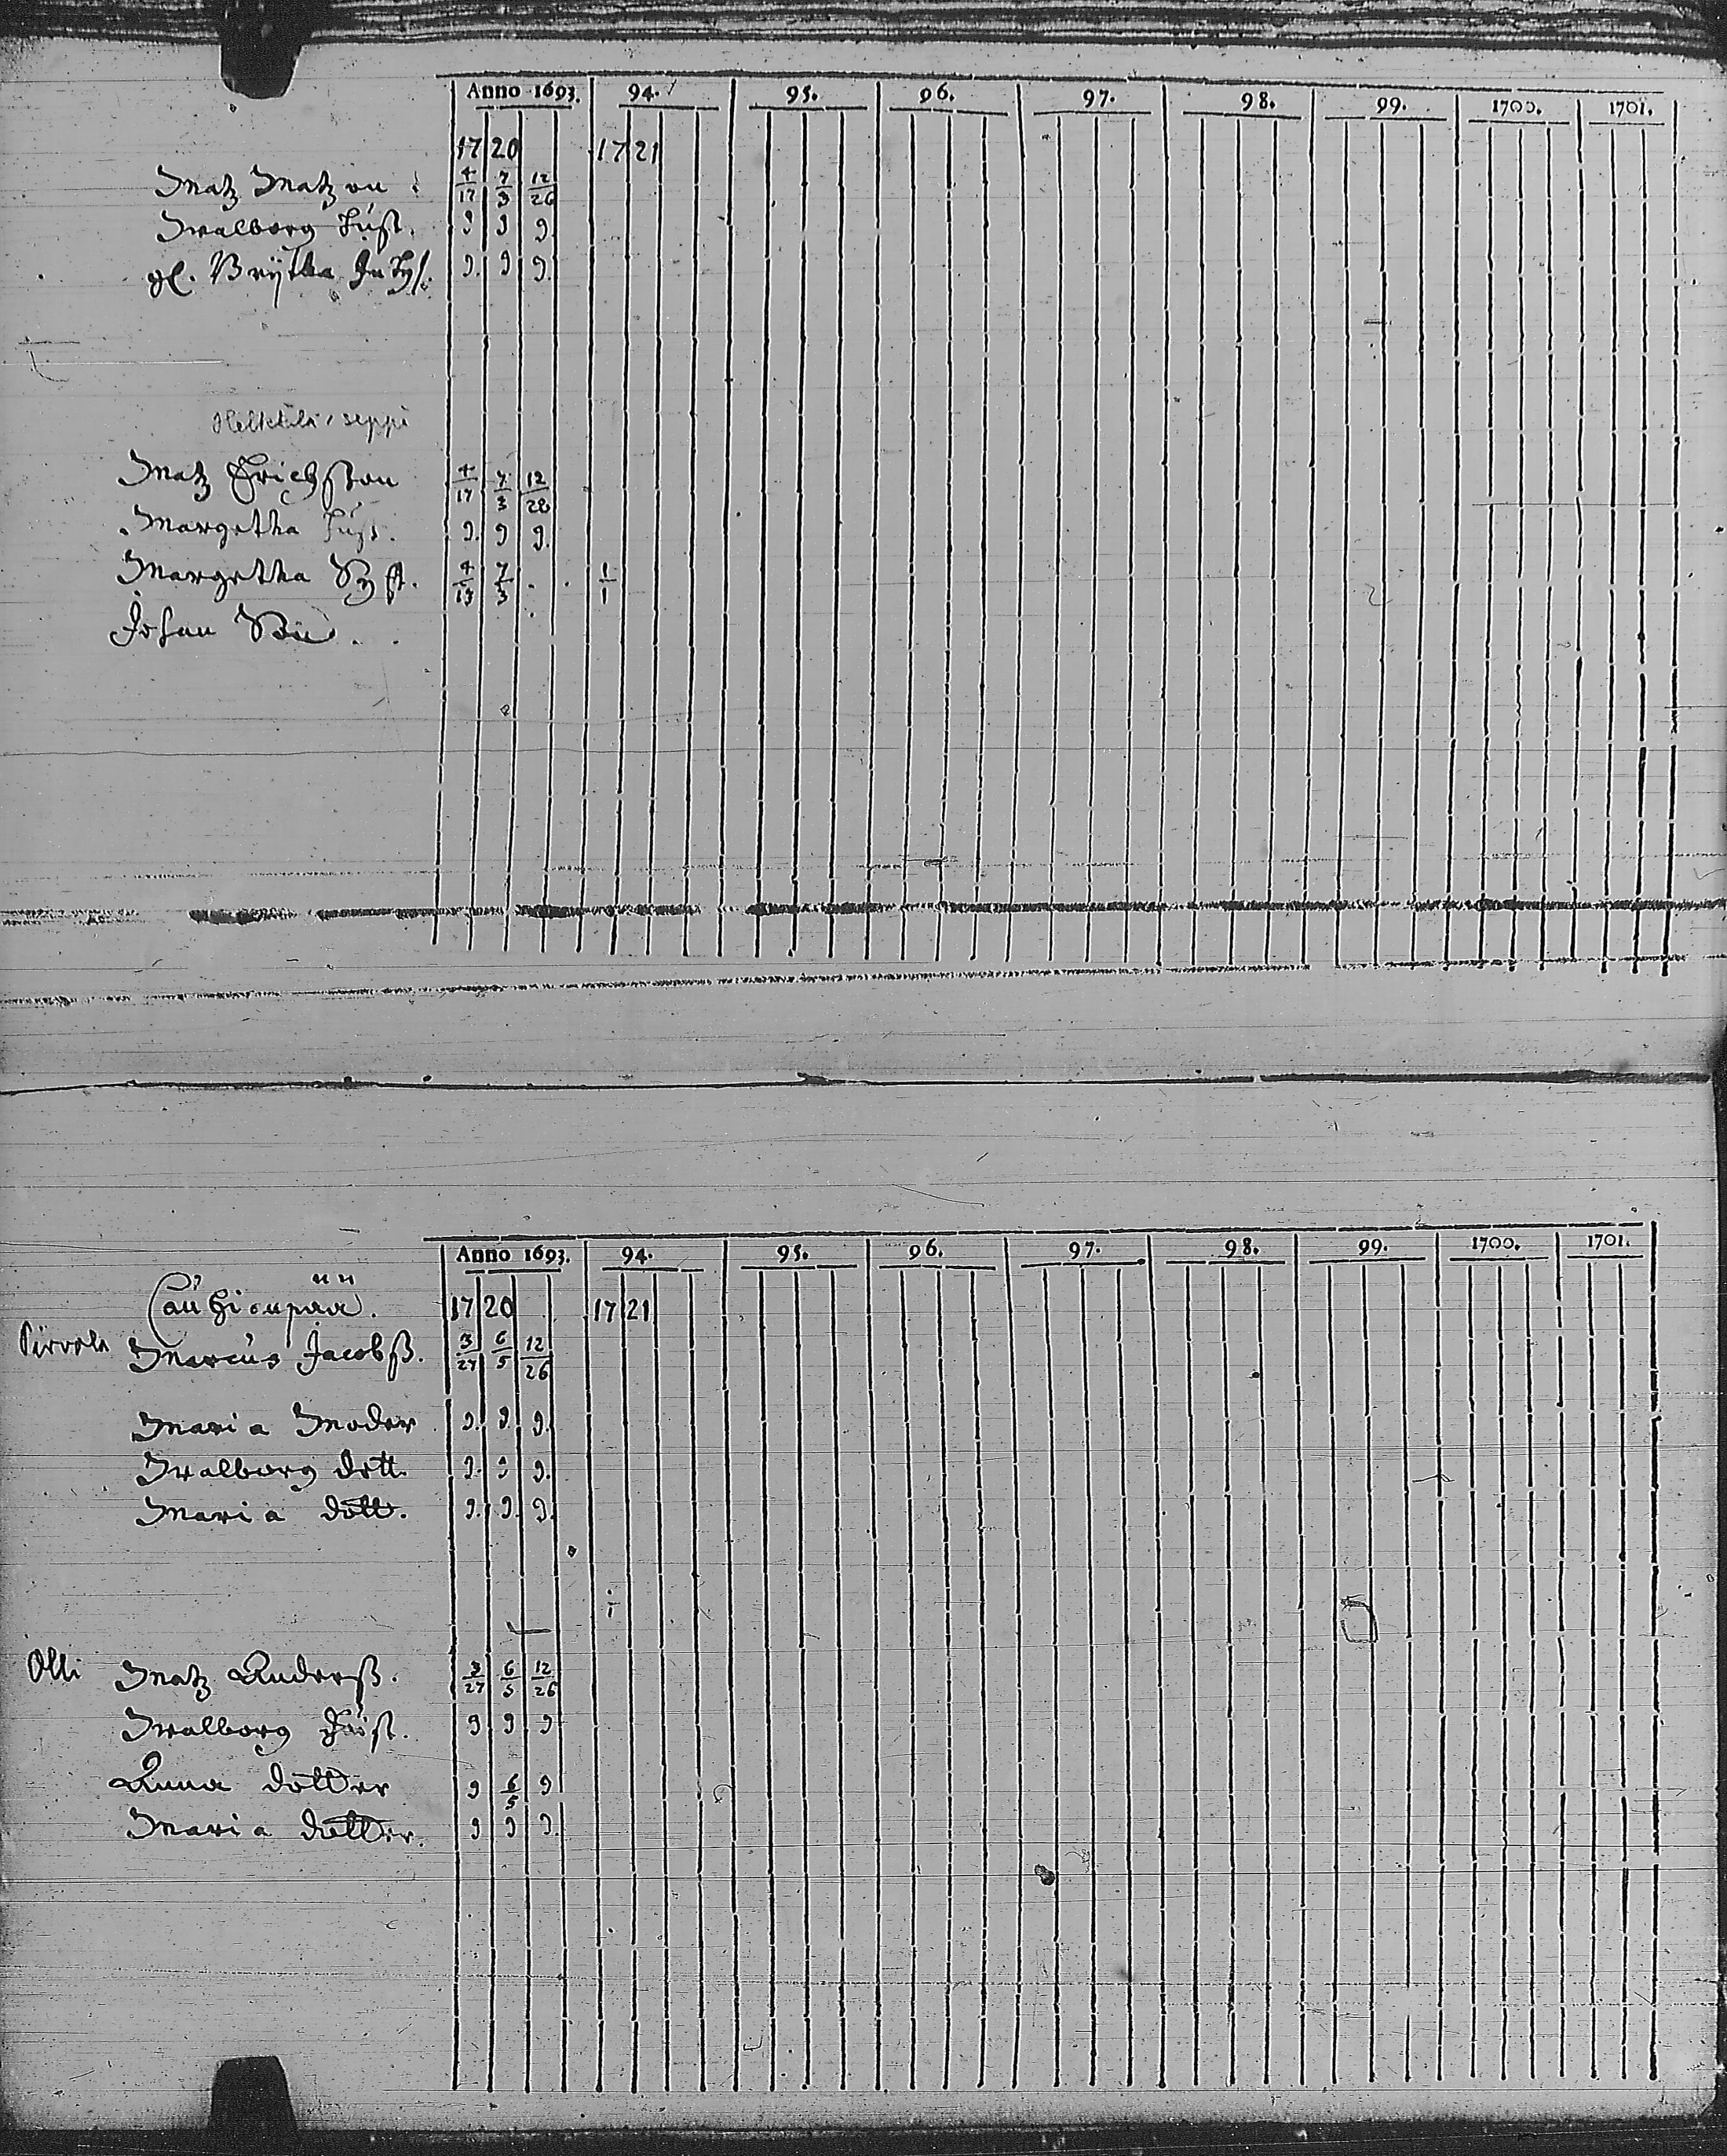 Anno 1693. 94. 95. 96. 97. 98. 99. 1700. 1701.
17 20 17 21
Matz Matzon : 4/17 7/3 12/26
Walborg Hust. 9 9 9.
gl. Brijtha 9. 9 9.
seppä
Matz Erichsson 4/17 7/3 12/28
Margetha Hust. 9. 9 9.
Margetha Syst. 4/17 7/3 1/1
Johan
Anno 1693. 94. 95. 96. 97. 98. 99. 1700. 1701.
Cauhionpää. 17 20 17 21
Pirvola Marcus Jacobß. 3/27 6/5 12/26
Maria Moder 9. 9. 9.
Walborg dott. 9. 9 9.
Maria dott. 9. 9. 9.
Olli Matz Anderß. 3/27 6/5 12/26
Walborg Hust. 9 9 9
Anna dotter 9 6/5 9
Maria dotter. 9 9 9.